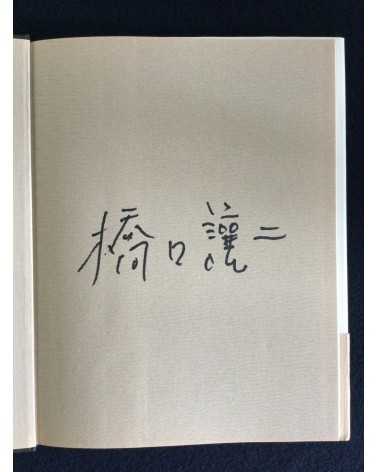 橋口譲二